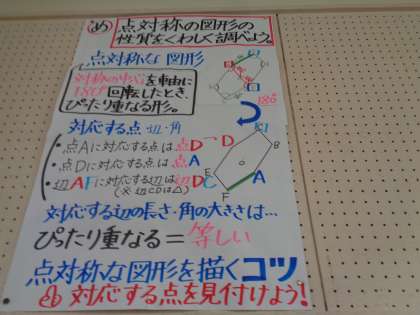 め 点対称の図形の
性質をくわしく調べよう。
点対称な図形
対称の中心を軸に
180°回転したとき、
ぴったり重なる形。
180°
対応する点・辺・角
・点Aに対応する点は点D
・点Dに対応する点は点A
・辺AFに対応する辺は辺DC
(※辺CDは△)
D
B
E
A
F
対応する辺の長さ・角の大きさは…
ぴったり重なる=等しい
点対称な図形を描くコツ
対応する点を見付けよう!